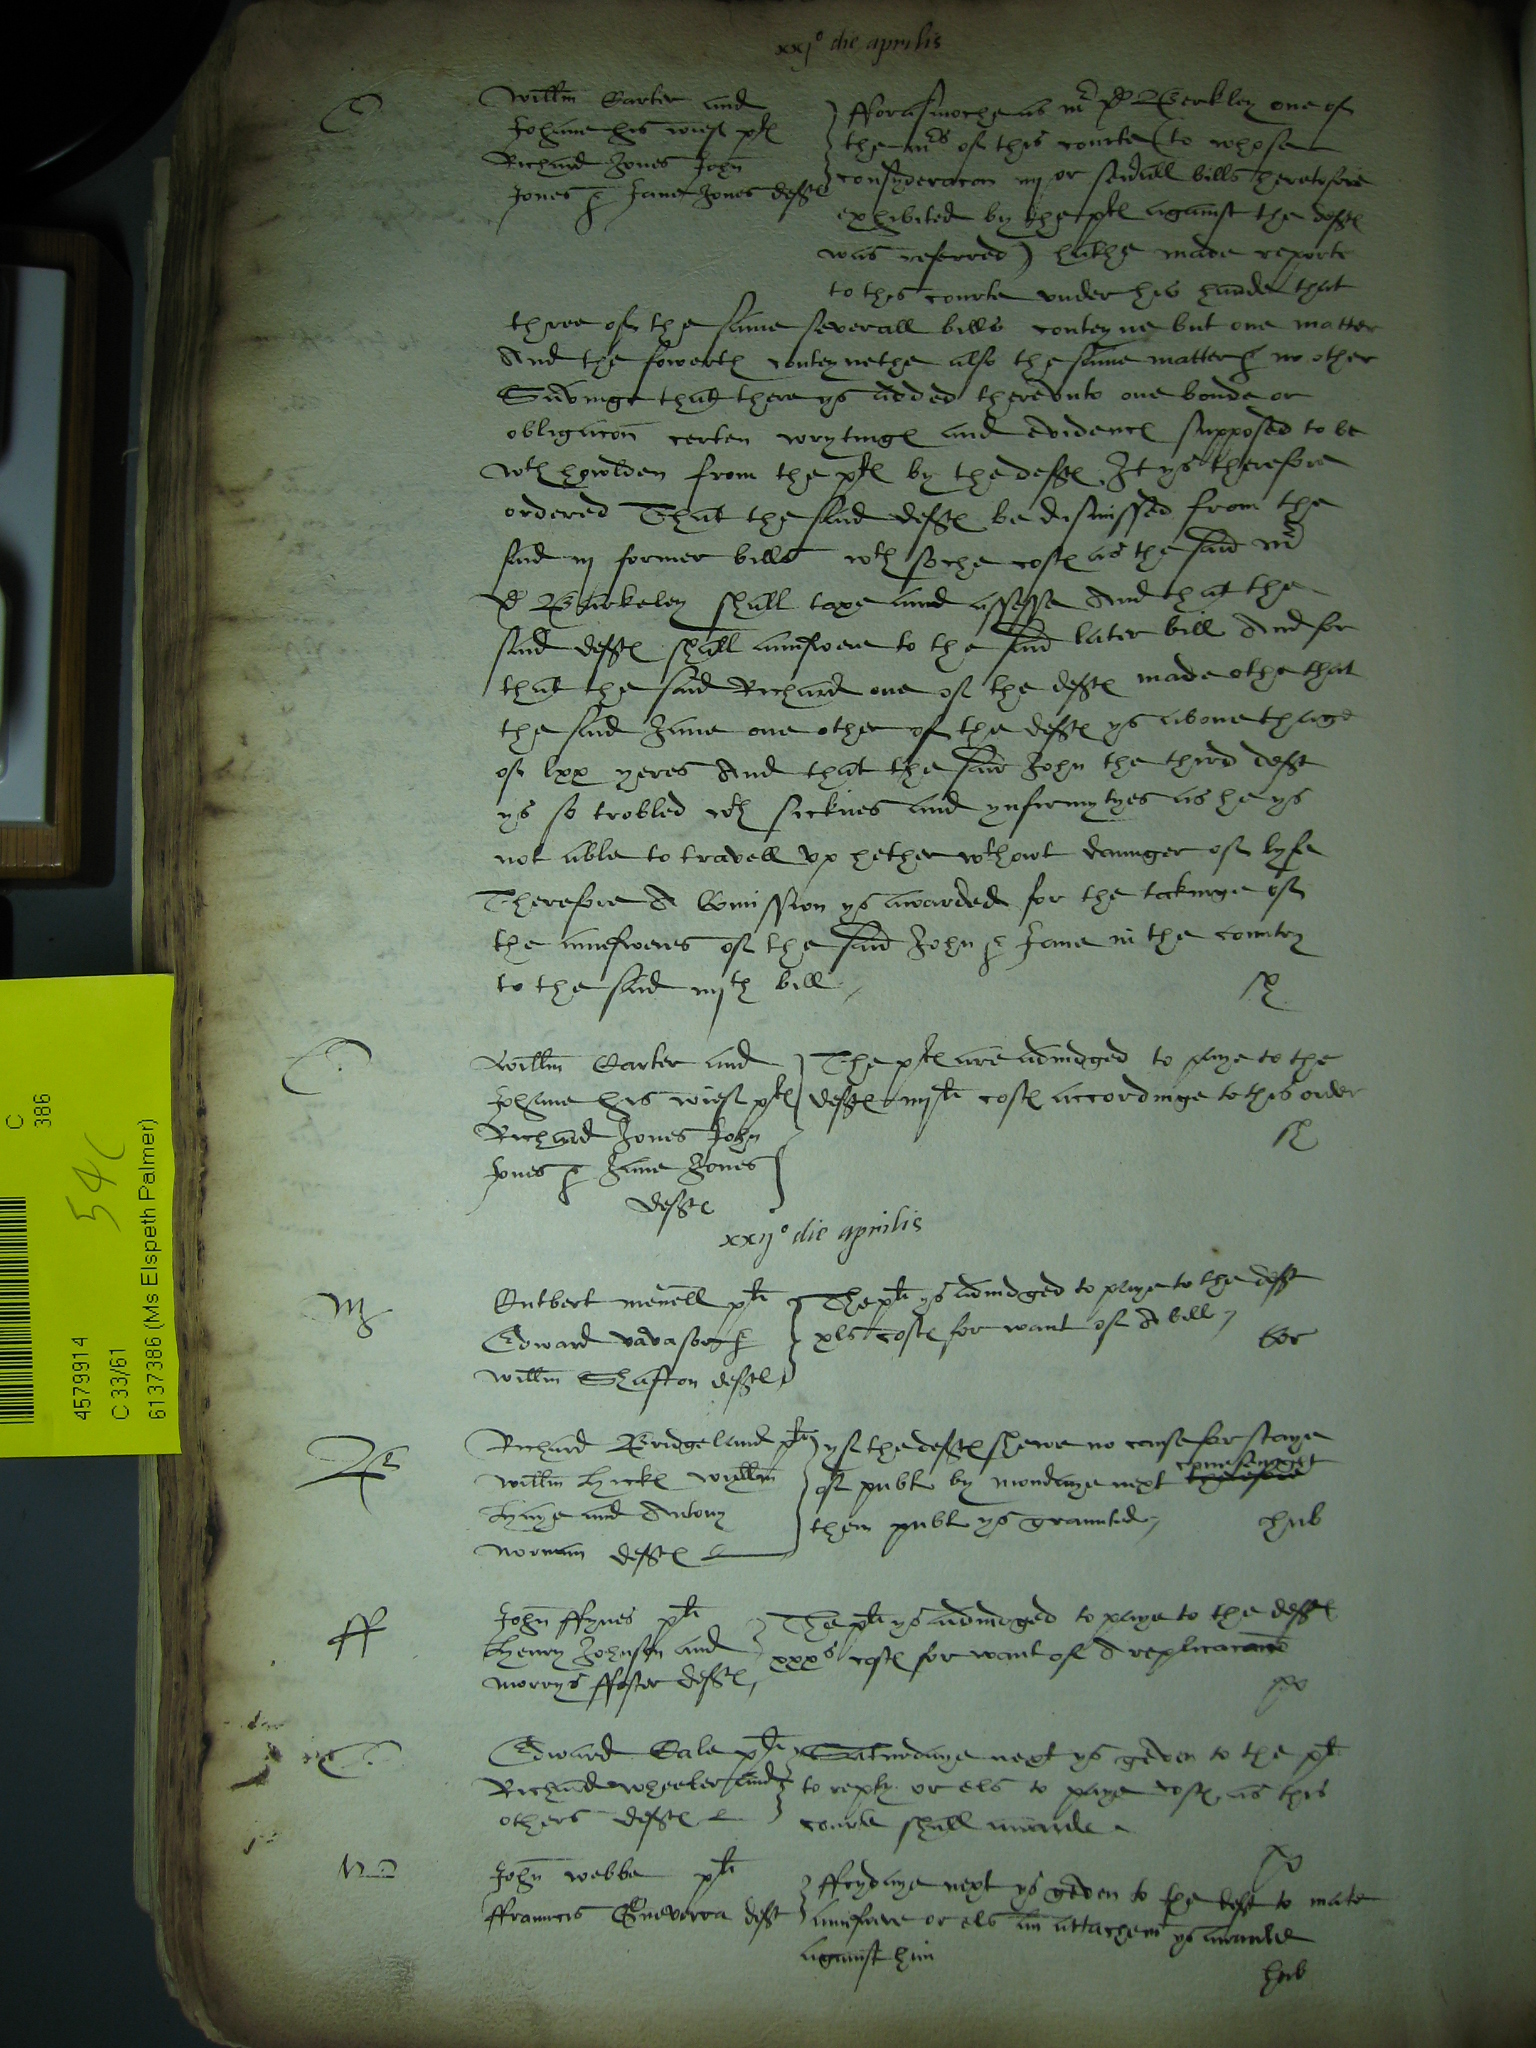 xxjo die aprilis
C
Willm Carter and
Johane his wief pltes
Richard Jones John
Jones & Jane Jones deftes
fforasmoche as mr d Berkley one of
the mrs of this courte (to whose
consyderacon iiij or severall bills heretofore
exhibited by the pltes against the deftes
was referred) hathe made reporte
to this courte under his hande that
three of the same severall bills conteyne but one matter
And the fowerth conteynethe also the same matter & no other
Savinge that there ys added therevnto one bonde or
obligacon certen wrytinges and evidences supposed to be
wthhowlden from the pltes by the deftes It ys therefore
ordered That the said deftes be dismissed from the
said iij former bills wth soche costes as the said mr
d Barkeley shall taxe and assesse And that the
said deftes shall aunswere to the said later bill And for
that the said Richard one of the deftes made othe that
the said Jane one other of the deftes ys above thage
of lxx yeres And that the said John the third deft
ys so trobled wth sicknes and ynfirmytyes as he ys
not able to travell vp hether wthowt daunger of lyfe
Therefore A Comission ys awarded for the takinge of
the aunsweres of the said John & Jane in the countrey
to the said iiijth bill
C
Willm Carter and
Johane his wief pltes
Richard Jones John
Jones & Jane Jones
deftes
The pltes are adiudged to paye to the
deftes iiijli costes accordinge to this order
xxijo die aprilis
M
Cutbert menell plt
Edward vavasor &
Willm Shafton deftes
The plt ys adiudged to paye to the deft
xls costes for want of A bill
B
Richard Bridgeland plt
Willm Hickes Willm
Haye and Antony
Norman deftes
yf the deftes shewe no cause for staye
of publ by mondaye next
then publ ys graunted
hub
ff
John ffynes plt
Henry Johnson and
morrys ffoster deftes
The plt ys adiudged to paye to the deftes
xxxs costes for want of A replicacion
C
Edward Cale plt
Richard wheeler and
others deftes
Saturdaye next ys geven to the plt
to reply or els to paye costes as this
courte shall awarde
W
John webbe plt
ffrauncis Gueverra deft
ffrydaye next ys geven to the deft to make
aunswere or els an attachemt ys awarded
against him
hub
C
386
54
4579914
C 33/61
6137386 (Ms Elspeth Palmer)